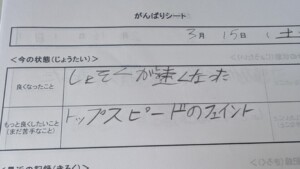 がんばりシート
3月 15日 (土
<今の状態(じょうたい)>
良くなったこと
しょそくが速くなった
もっと良くしたいこと
(まだ苦手なこと)
トップスピードのフェイント